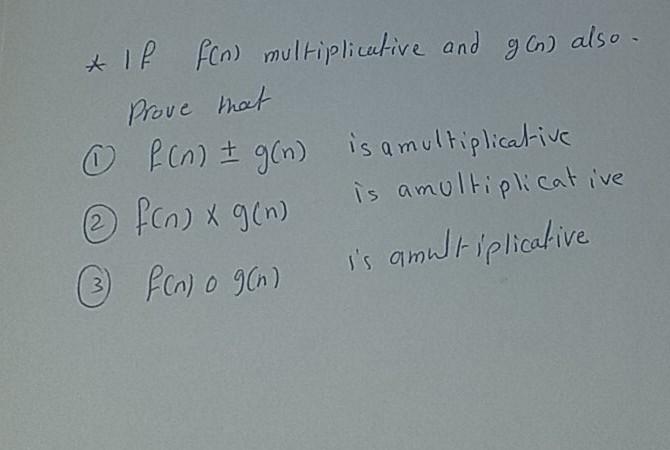 * If f(n) multiplicative and g(n) also.
Prove that
① f(n) ± g(n) is a multiplicative
② f(n) x g(n) is a multiplicative
③ f(n) o g(n) i's a multiplicative